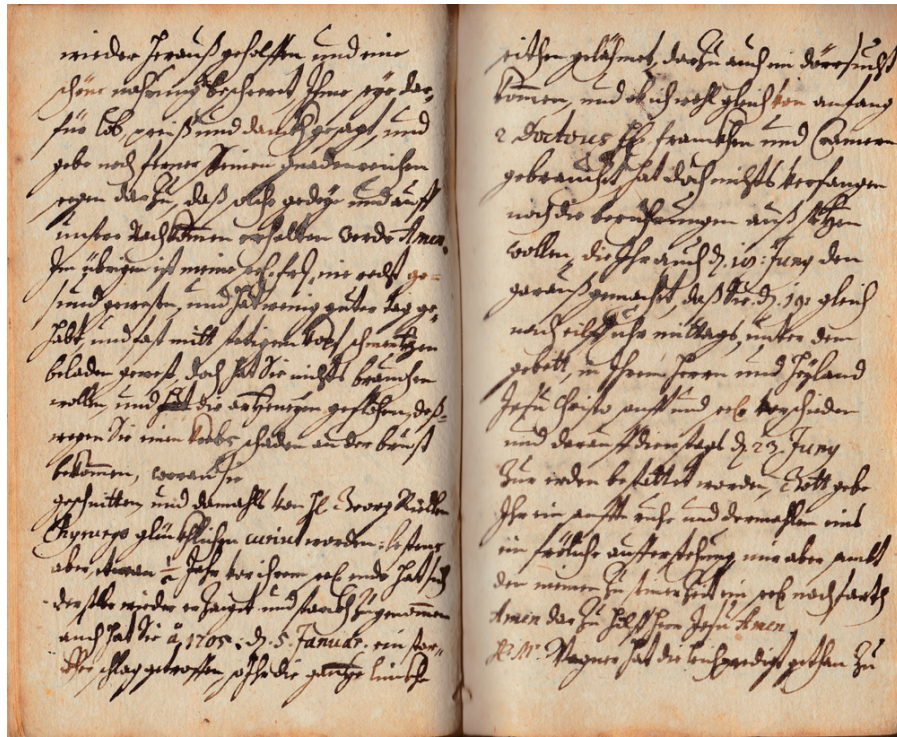 wieder herauß geholffen und eine
schöne nahrung beschehret, Ihme seye dar,
für lob, preiß und danckh gesagt, und
gebe noch ferner Seinen gnadenreichen
segen darzu, daß solche gedeye und auff
unsere Nachkommen erhalten werde Amen.
Im übrigen ist meine sel. fr. nie recht ge=
sund gewesen, und hat wenig guter tag ge,
habt, und fast mitt stetigem kopf schmertzen
beladen gewest, doch hat Sie nichts brauchen
wollen, und die artzeneyen geflohen, deß=
wegen Sie einen krebs schaden an der brust
bekommen, woran sie
geschnitten und damahls von H. Georg
Chyrurgo glücklichen curirt worden: letstens
aber, etwan ½ Jahr vor ihrem sel. ende hat sich
derselbe wieder erzaigt und starckh zugenommen
auch hat Sie aͦ 1705: d. 5. Januar. ein star,
cker schlag getroffen, so Ihr die gantze lincke
seithen gelähmet, darzu auch ein dörrsucht
kommen, und ob ich wohl gleich von anfang
2 Doctores H. Franckhen und Cramern
gebrauchet hat doch nichts verfangen
noch die auß
wollen, die Ihr auch d. 19: Juny den
garauß gemacht, daß Sie d. 19: gleich
nach eilff uhr mittags, unter dem
gebett, in Ihrem Herrn und Heyland
Jesu Christo sanfft und sel. verschieden
und darauff dienstags d. 23. Juny
zur erden bestattet worden, Gott gebe
Ihr ein sanffte ruhe und dermahlen eins
ein fröliche aufferstehung, mir aber sambt
den meinen zu seiner zeit ein sel. nachfarth
Amen das zu hilff Herr Jesu Amen,
H. Mr. Wagner hat die leichpredigt gethan zu